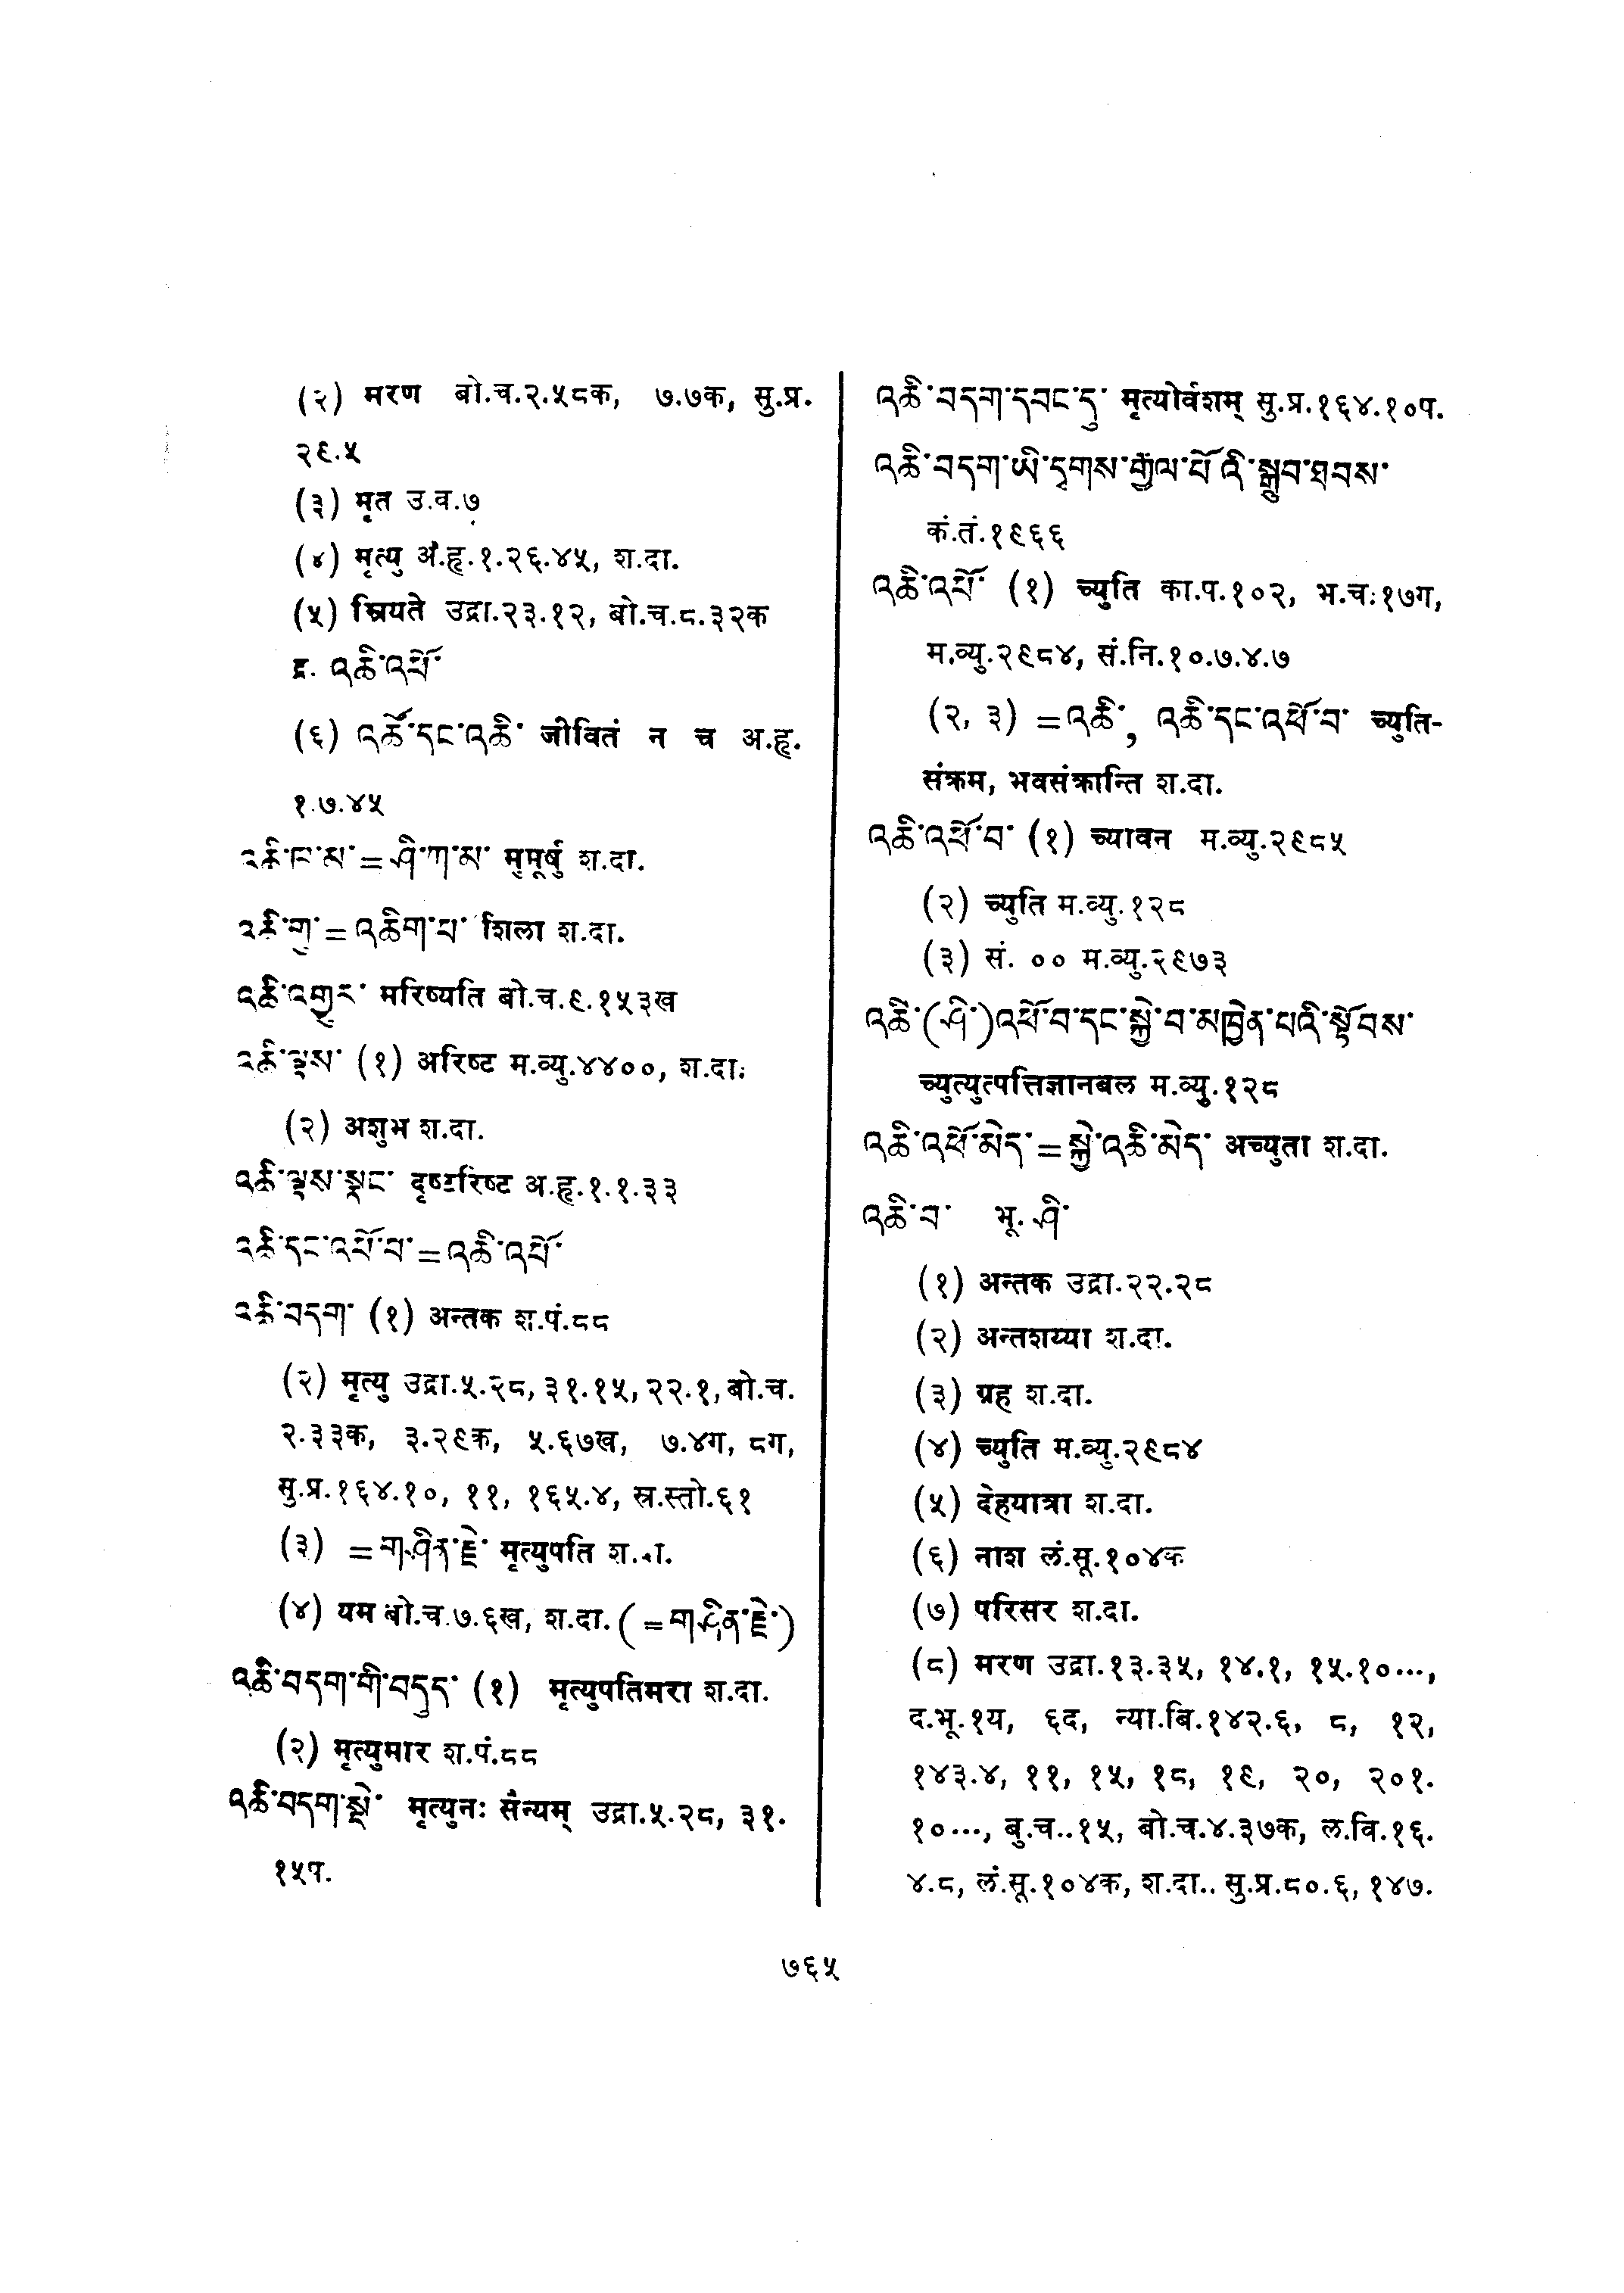 (२) मरण बो.च.२.५८क, ७.७क, सु.प्र.
२९.५
(३) मृत उ.व.७
(४) मृत्यु अ.हृ.१.२६.४५, श.दा.
(५) म्रियते उद्रा.२३.१२, बो.च.८.३२क
द्र. འཆི་འཕོ་
(६) འཚོ་དང་འཆི་ जीवितं न च अ.हृ.
१.७.४५
འཆི་ང་མ་=ཤི་ཀ་མ་ मुमूर्षु श.दा.
འཆི་གུ་=འཆིག་པ་ शिला श.दा.
འཆི་འགྱུར་ मरिष्यति बो.च.९.१५३ख
འཆི་ལྟས་ (१) अरिष्ट म.व्यु.४४००, श.दा.
(२) अशुभ श.दा.
འཆི་ལྟས་སྣང་ दृष्टरिष्ट अ.हृ.१.१.३३
འཆི་དང་འཕོ་བ་=འཆི་འཕོ་
འཆི་བདག་ (१) अन्तक श.पं.८८
(२) मृत्यु उद्रा.५.२८, ३१.१५, २२.१, बो.च.
२.३३क, ३.२९क, ५.६७ख, ७.४ग, ८ग,
सु.प्र.१६४.१०, ११, १६५.४, स्र.स्तो.६१
(३) =གཤིན་རྗེ་ मृत्युपति श.दा.
(४) यम बो.च.७.६ख, श.दा. (=གཤིན་རྗེ་)
འཆི་བདག་གི་བདུད་ (१) मृत्युपतिमरा श.दा.
(२) मृत्युमार श.पं.८८
འཆི་བདག་སྡེ་ मृत्युनः सैन्यम् उद्रा.५.२८, ३१.
१५प.
འཆི་བདག་དབང་དུ་ मृत्योर्वशम् सु.प्र.१६४.१०प.
འཆི་བདག་ཡི་དྭགས་རྒྱལ་པོ་འི་སྒྲུབ་ཐབས་
कं.तं.१९६६
འཆི་འཕོ་ (१) च्युति का.प.१०२, भ.च.१७ग,
म.व्यु.२९८४, सं.नि.१०.७.४.७
(२, ३) =འཆི་, འཆི་དང་འཕོ་བ་ च्युति-
संक्रम, भवसंक्रान्ति श.दा.
འཆི་འཕོ་བ་ (१) च्यावन म.व्यु.२९८५
(२) च्युति म.व्यु.१२८
(३) सं. ०० म.व्यु.२९७३
འཆི་(ཤི་)འཕོ་བ་དང་སྐྱེ་བ་མཁྱེན་པའི་སྟོབས་
च्युत्युत्पत्तिज्ञानबल म.व्यु.१२८
འཆི་འཕོ་མེད་=སྐྱེ་འཆི་མེད་ अच्युता श.दा.
འཆི་བ་ भू. ཤི་
(१) अन्तक उद्रा.२२.२८
(२) अन्तशय्या श.दा.
(३) ग्रह श.दा.
(४) च्युति म.व्यु.२९८४
(५) देहयात्रा श.दा.
(६) नाश लं.सू.१०४क
(७) परिसर श.दा.
(८) मरण उद्रा.१३.३५, १४.१, १५.१०···,
द.भू.१य, ६द, न्या.बि.१४२.६, ८, १२,
१४३.४, ११, १५, १८, १९, २०, २०१.
१०···, बु.च..१५, बो.च.४.३७क, ल.वि.१६.
४.८, लं.सू.१०४क, श.दा.. सु.प्र.८०.६, १४७.
७६५